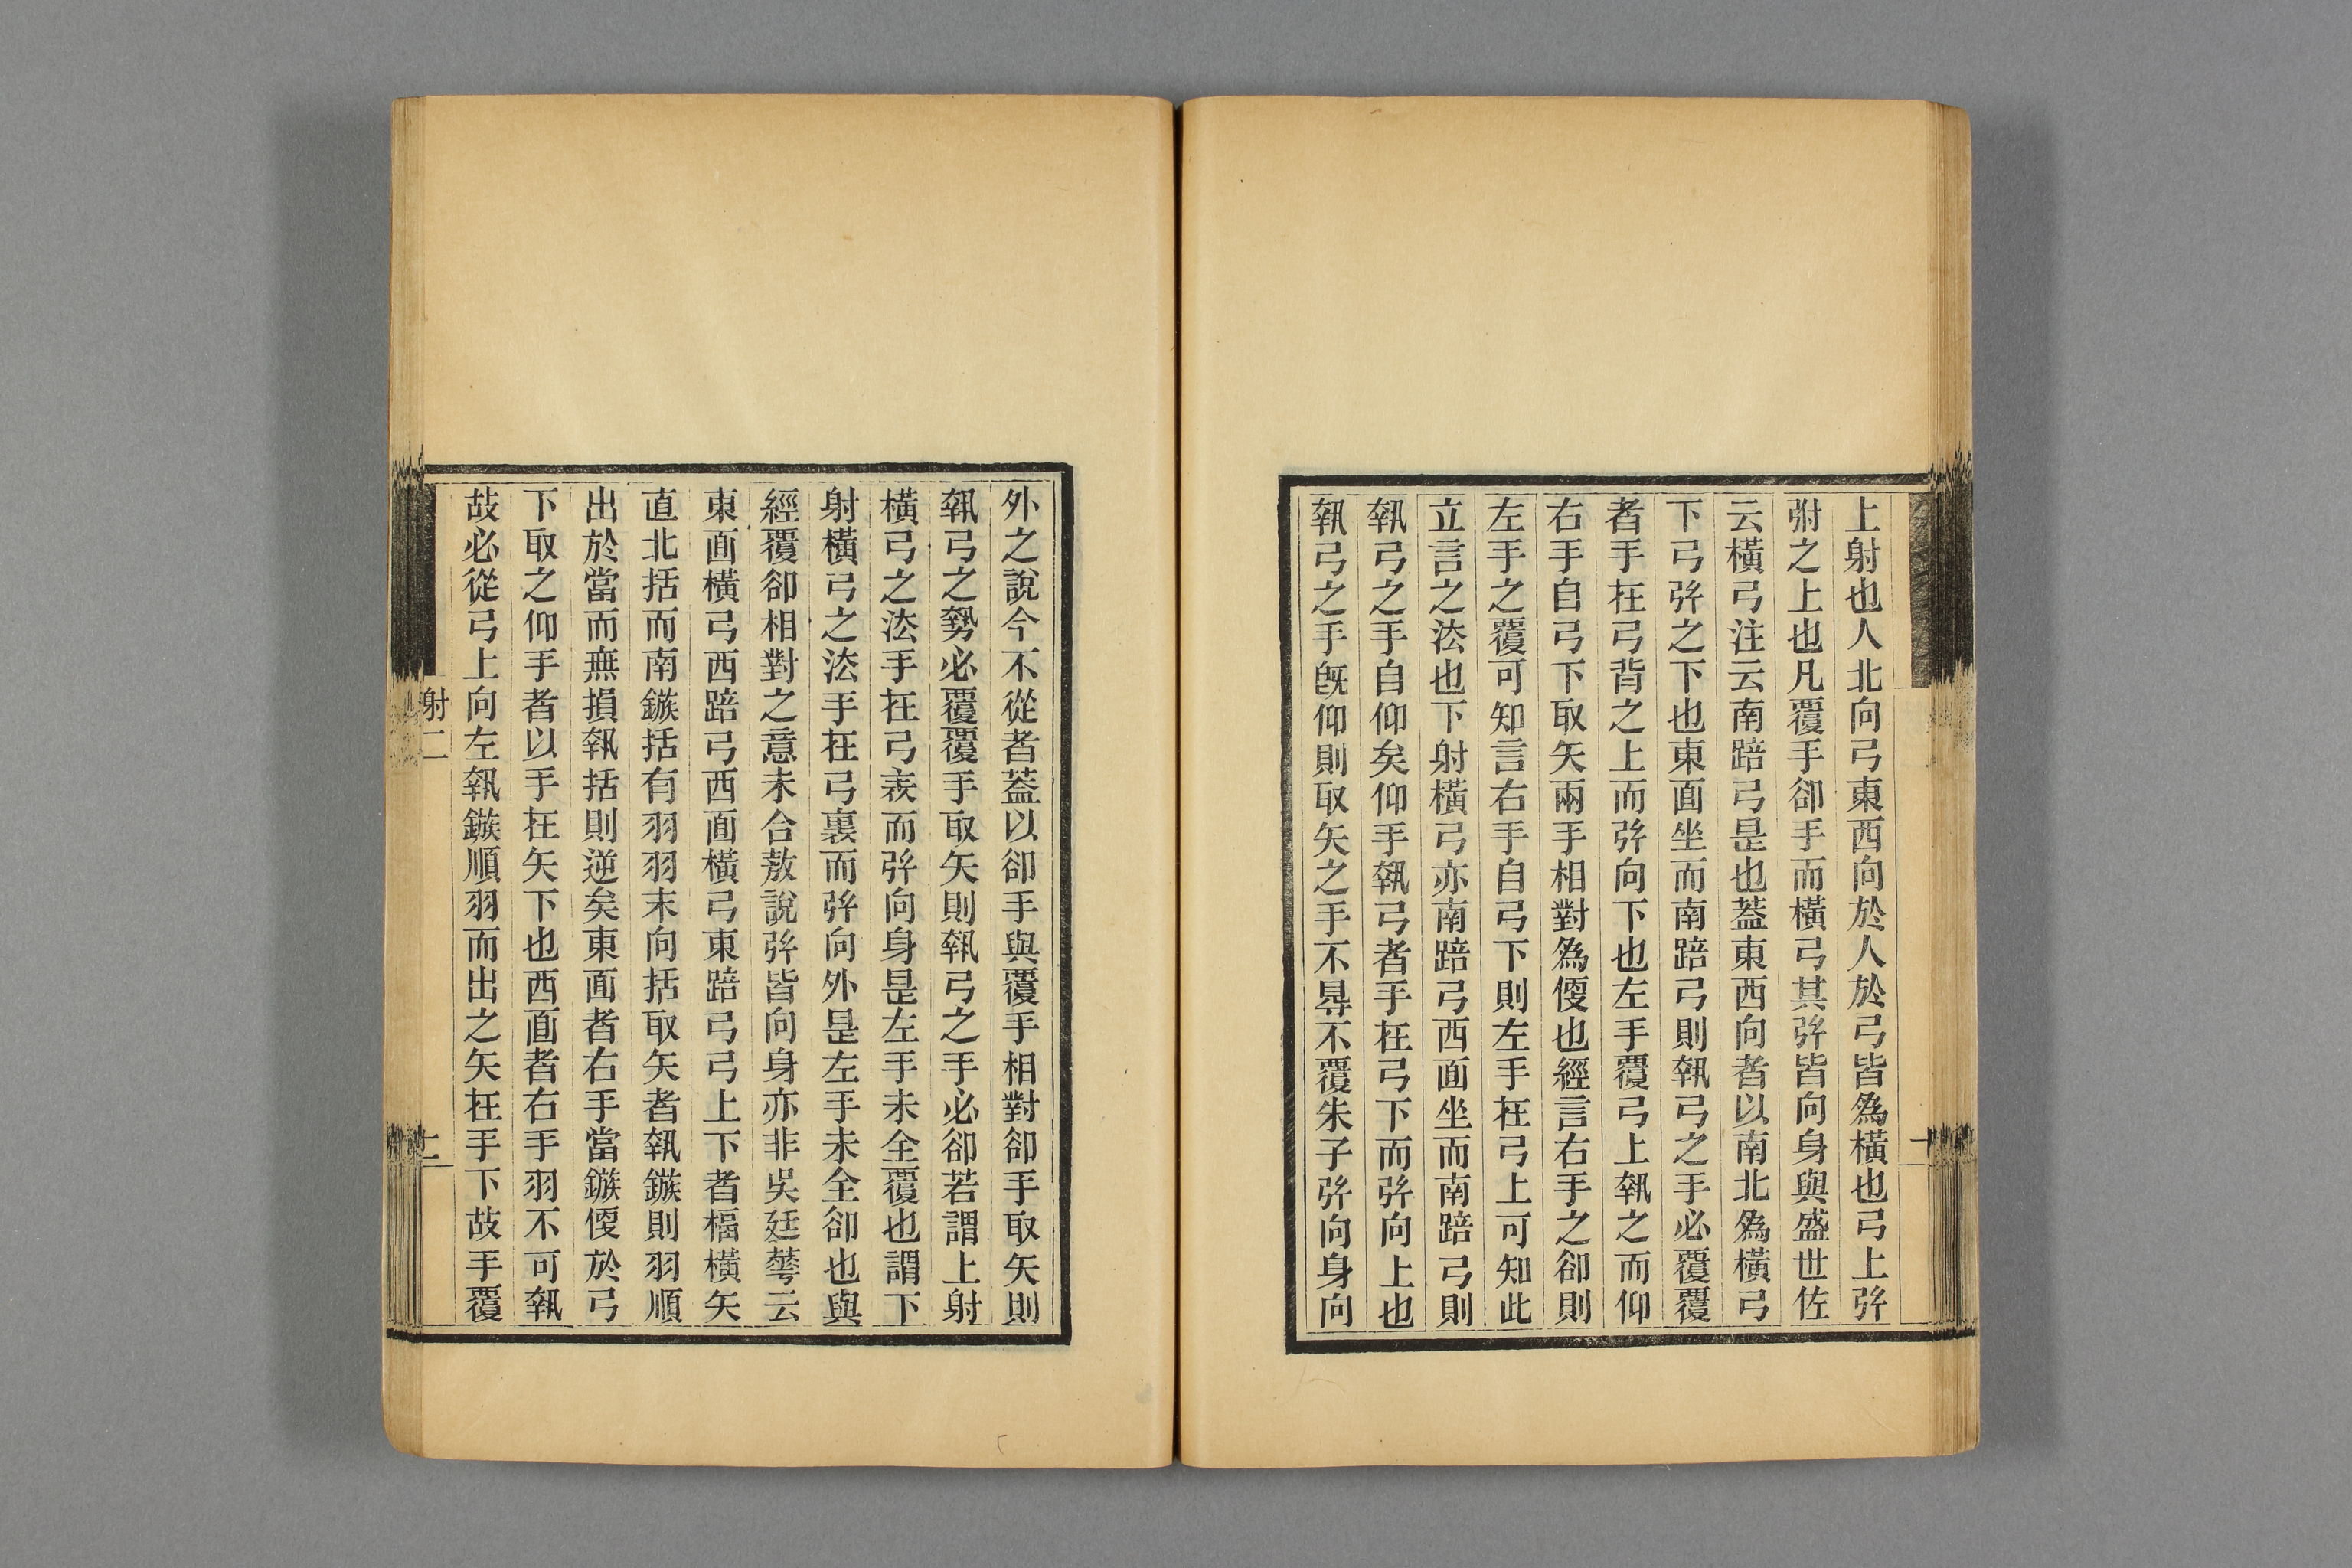 上射也人北向弓東西向於人於弓皆爲橫也弓上弣
弣之上也凡覆手卻手而橫弓其弣皆向身與盛世佐
云橫弓注云南踣弓是也蓋東西向者以南北爲橫弓
下弓弣之下也東面坐而南踣弓則執弓之手必覆覆
者手在弓背之上而弣向下也左手覆弓上執之而仰
右手自弓下取矢兩手相對爲便也經言右手之卻則
左手之覆可知言右手自弓下則左手在弓上可知此
立言之法也下射橫弓亦南踣弓西面坐而南踣弓則
執弓之手自仰矣仰手執弓者手在弓下而弣向上也
執弓之手既仰則取矢之手不得不覆朱子弣向身向
外之說今不從者蓋以卻手與覆手相對卻手取矢則
執弓之勢必覆覆手取矢則執弓之手必卻若謂上射
橫弓之法手在弓表而弣向身是左手未全覆也謂下
射橫弓之法手在弓裏而弣向外是左手未全卻也與
經覆卻相對之意未合敖說弣皆向身亦非吳廷華云
東面橫弓西踣弓西面橫弓東踣弓弓上下者楅橫矢
直北括而南鏃括有羽羽末向括取矢者執鏃則羽順
出於當而無損執括則逆矣東面者右手當鏃便於弓
下取之仰手者以手在矢下也西面者右手羽不可執
故必從弓上向左執鏃順羽而出之矢在手下故手覆
射二
二